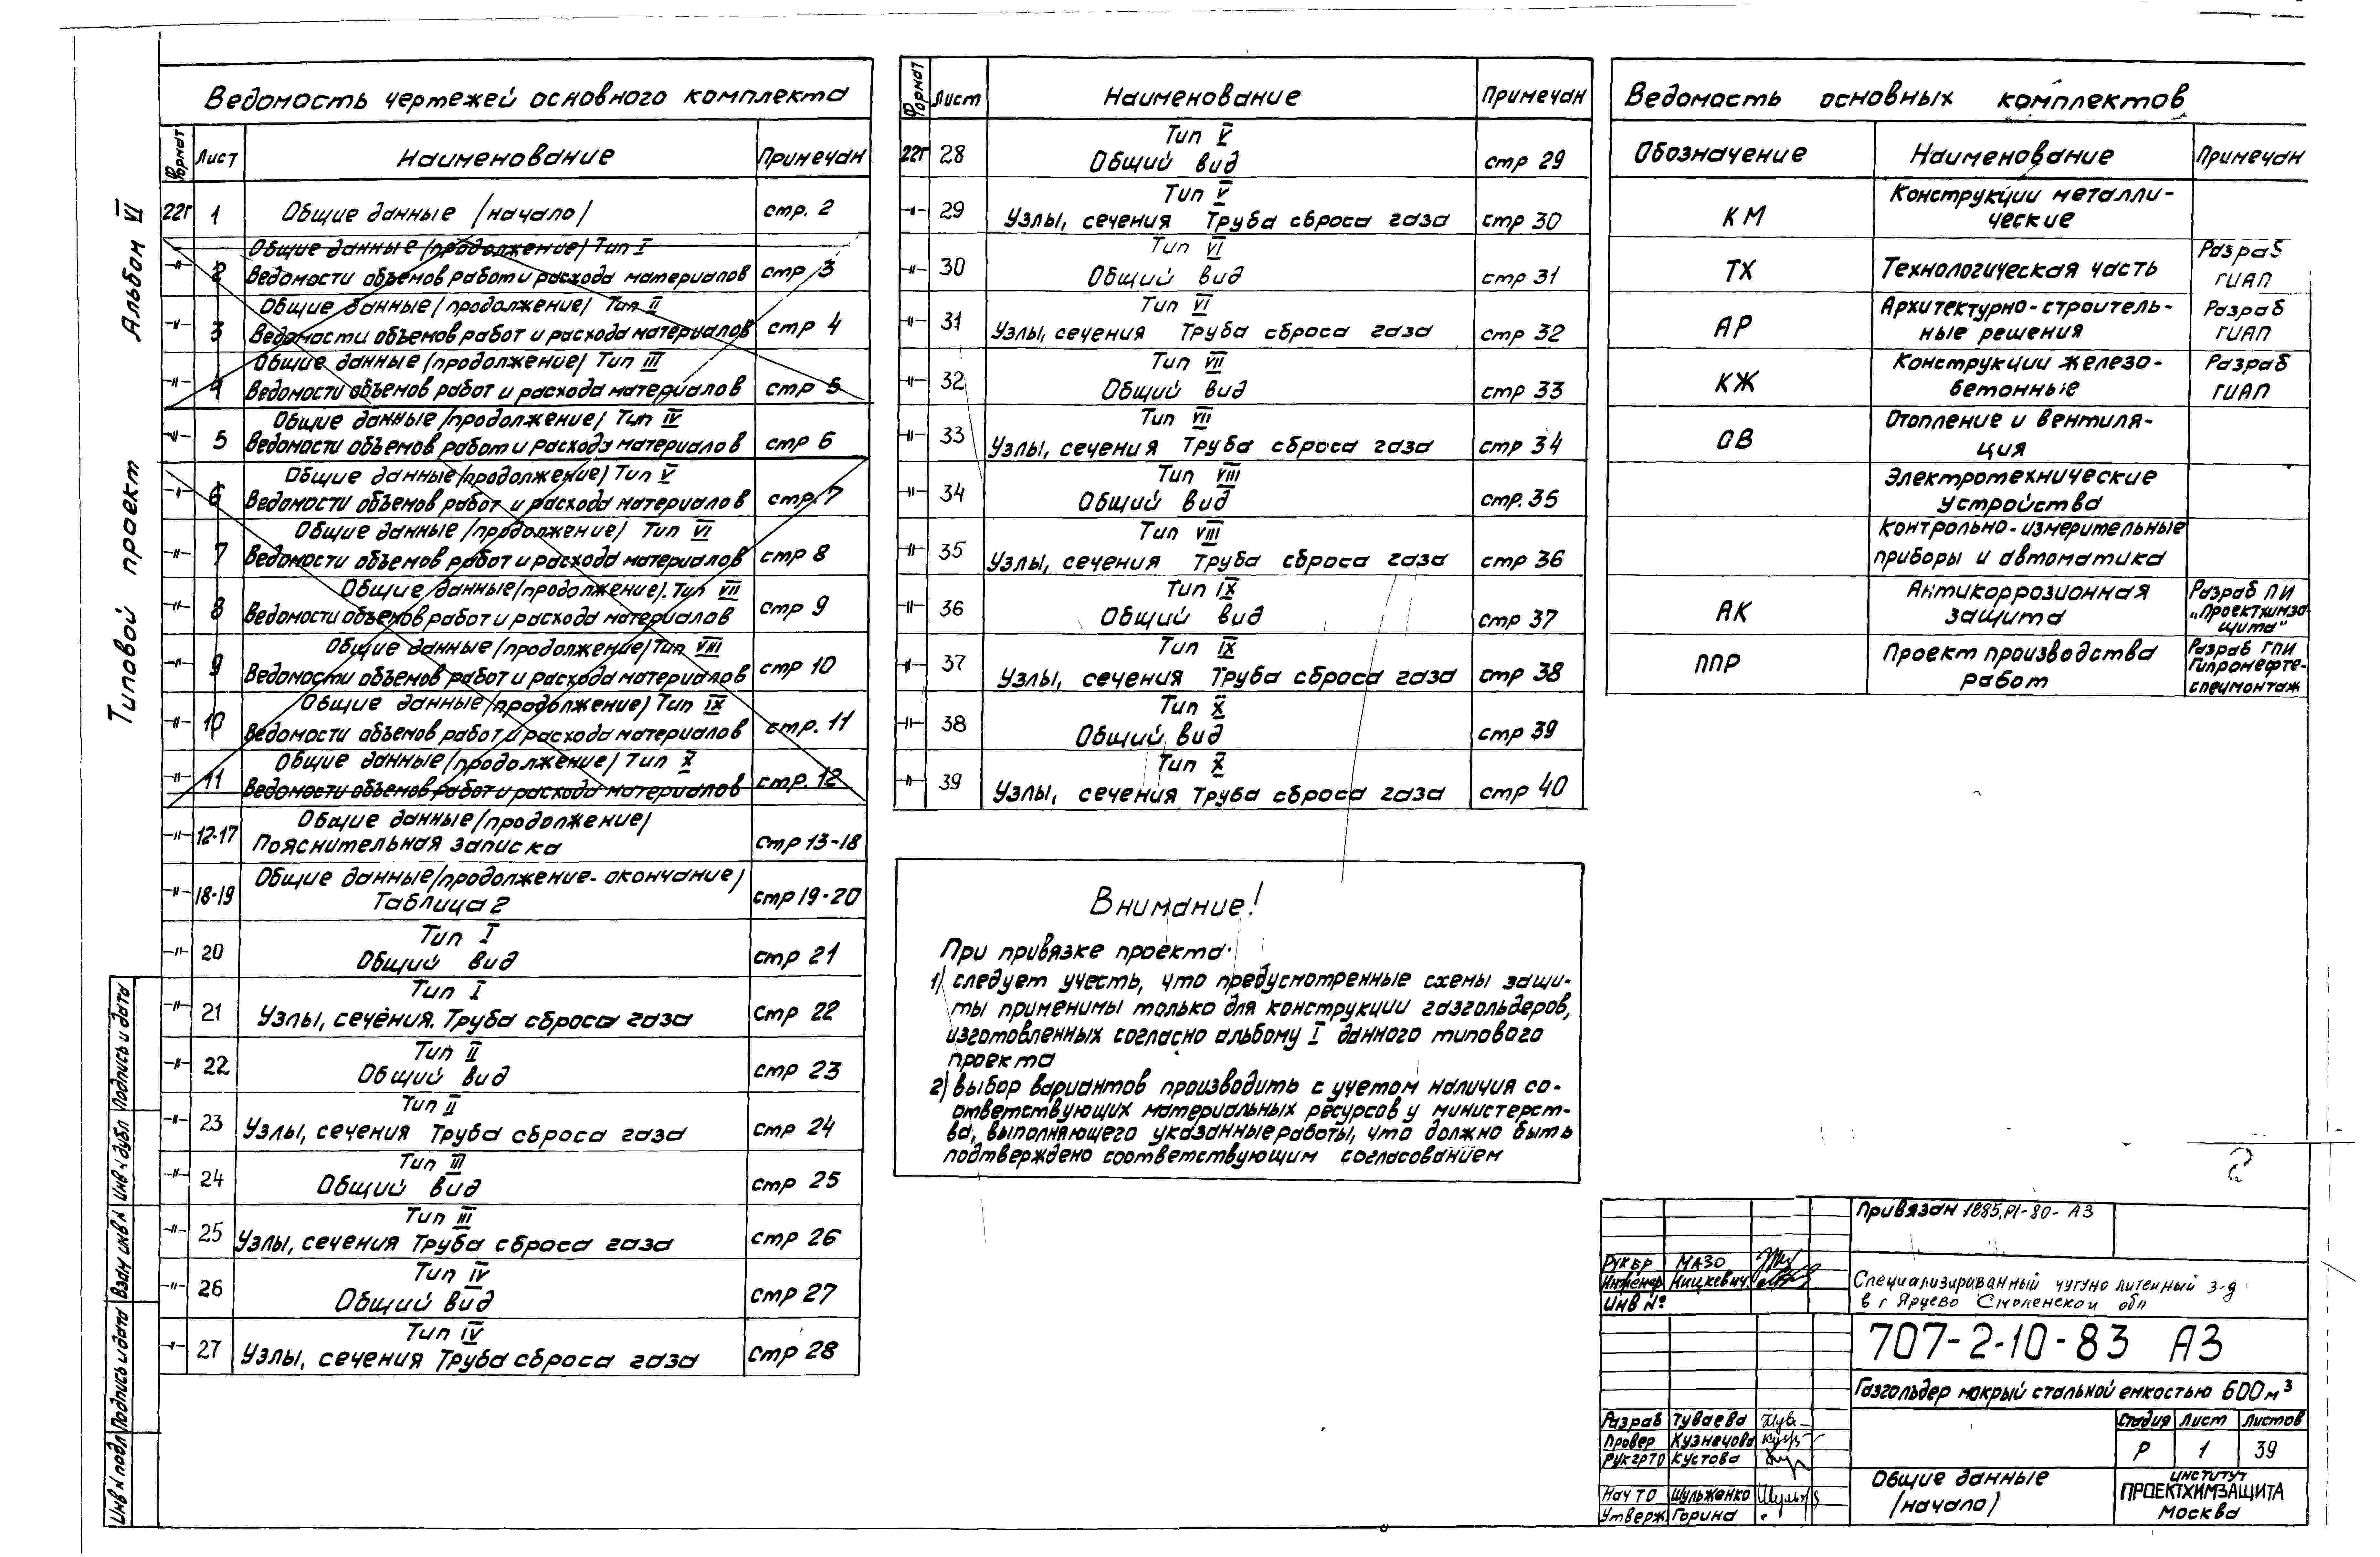 Альбом VI
Типовой проект
Ведомость чертежей основного комплекта
Формат Лист Наименование Примечан
22г 1 Общие данные /начало/ стр. 2
Общие данные /продолжение/ Тип I
-"- 2 Ведомости объемов работ и расхода материалов стр 3
Общие данные /продолжение/ Тип II
-"- 3 Ведомости объемов работ и расхода материалов стр 4
Общие данные /продолжение/ Тип III
-"- 4 Ведомости объемов работ и расхода материалов стр 5
Общие данные /продолжение/ Тип IV
-"- 5 Ведомости объемов работ и расхода материалов стр 6
Общие данные /продолжение/ Тип V
-"- 6 Ведомости объемов работ и расхода материалов стр. 7
Общие данные /продолжение/ Тип VI
-"- 7 Ведомости объемов работ и расхода материалов стр 8
Общие данные /продолжение/. Тип VII
-"- 8 Ведомости объемов работ и расхода материалов стр 9
Общие данные /продолжение/ Тип VIII
-"- 9 Ведомости объемов работ и расхода материалов стр 10
Общие данные /продолжение/ Тип IX
-"- 10 Ведомости объемов работ и расхода материалов стр. 11
Общие данные /продолжение/ Тип X
-"- 11 Ведомости объемов работ и расхода материалов стр. 12
Общие данные /продолжение/
-"- 12-17 Пояснительная записка стр 13-18
Общие данные /продолжение- окончание/
-"- 18-19 Таблица 2 стр 19-20
Тип I
-"- 20 Общий вид стр 21
Тип I
-"- 21 Узлы, сечения. Труба сброса газа стр 22
Тип II
-"- 22 Общий вид стр 23
Тип II
-"- 23 Узлы, сечения Труба сброса газа стр 24
Тип III
-"- 24 Общий вид стр 25
Тип III
-"- 25 Узлы, сечения Труба сброса газа стр 26
Тип IV
-"- 26 Общий вид стр 27
Тип IV
-"- 27 Узлы, сечения Труба сброса газа стр 28
Формат Лист Наименование Примечан
Тип V
22г 28 Общий вид стр 29
Тип V
-"- 29 Узлы, сечения Труба сброса газа стр 30
Тип VI
-"- 30 Общий вид стр 31
Тип VI
-"- 31 Узлы, сечения Труба сброса газа стр 32
Тип VII
-"- 32 Общий вид стр 33
Тип VII
-"- 33 Узлы, сечения Труба сброса газа стр 34
Тип VIII
-"- 34 Общий вид стр. 35
Тип VIII
-"- 35 Узлы, сечения Труба сброса газа стр 36
Тип IX
-"- 36 Общий вид стр 37
Тип IX
-"- 37 Узлы, сечения Труба сброса газа стр 38
Тип X
-"- 38 Общий вид стр 39
Тип X
-"- 39 Узлы, сечения Труба сброса газа стр 40
Внимание!
При привязке проекта:
1) следует учесть, что предусмотренные схемы защи-
ты применимы только для конструкции газгольдеров,
изготовленных согласно альбому I данного типового
проекта
2) выбор вариантов производить с учетом наличия со-
ответствующих материальных ресурсов у министерст-
ва, выполняющего указанные работы, что должно быть
подтверждено соответствующим согласованием
Ведомость основных комплектов
Обозначение Наименование Примечан
КМ Конструкции металли-
ческие
ТХ Технологическая часть Разраб
ГИАП
АР Архитектурно-строитель- Разраб
ные решения ГИАП
КЖ Конструкции железо- Разраб
бетонные ГИАП
ОВ Отопление и вентиля-
ция
Электротехнические
устройства
Контрольно-измерительные
приборы и автоматика
АК Антикоррозионная Разраб ПИ
защита „Проектхимза
щита"
ППР Проект производства Разраб ГПИ
работ Гипронефте-
спецмонтаж
Привязан 1885,Р1-80- АЗ
Рук бр МАЗО
Инженер Ницкевич
Инв №
Специализированный чугунолитейный з-д
в г Ярцево Смоленской обл
707-2-10-83 АЗ
Газгольдер мокрый стальной емкостью 600 м³
Стадия Лист Листов
Р 1 39
Разраб Туваева
Провер Кузнецова
Рук гр ТО Кустова
Нач ТО Шульженко
Утверж. Горина
Общие данные
/начало/
ИНСТИТУТ
ПРОЕКТХИМЗАЩИТА
Москва
Инв N подл Подпись и дата Взам инв N Инв N дубл Подпись и дата